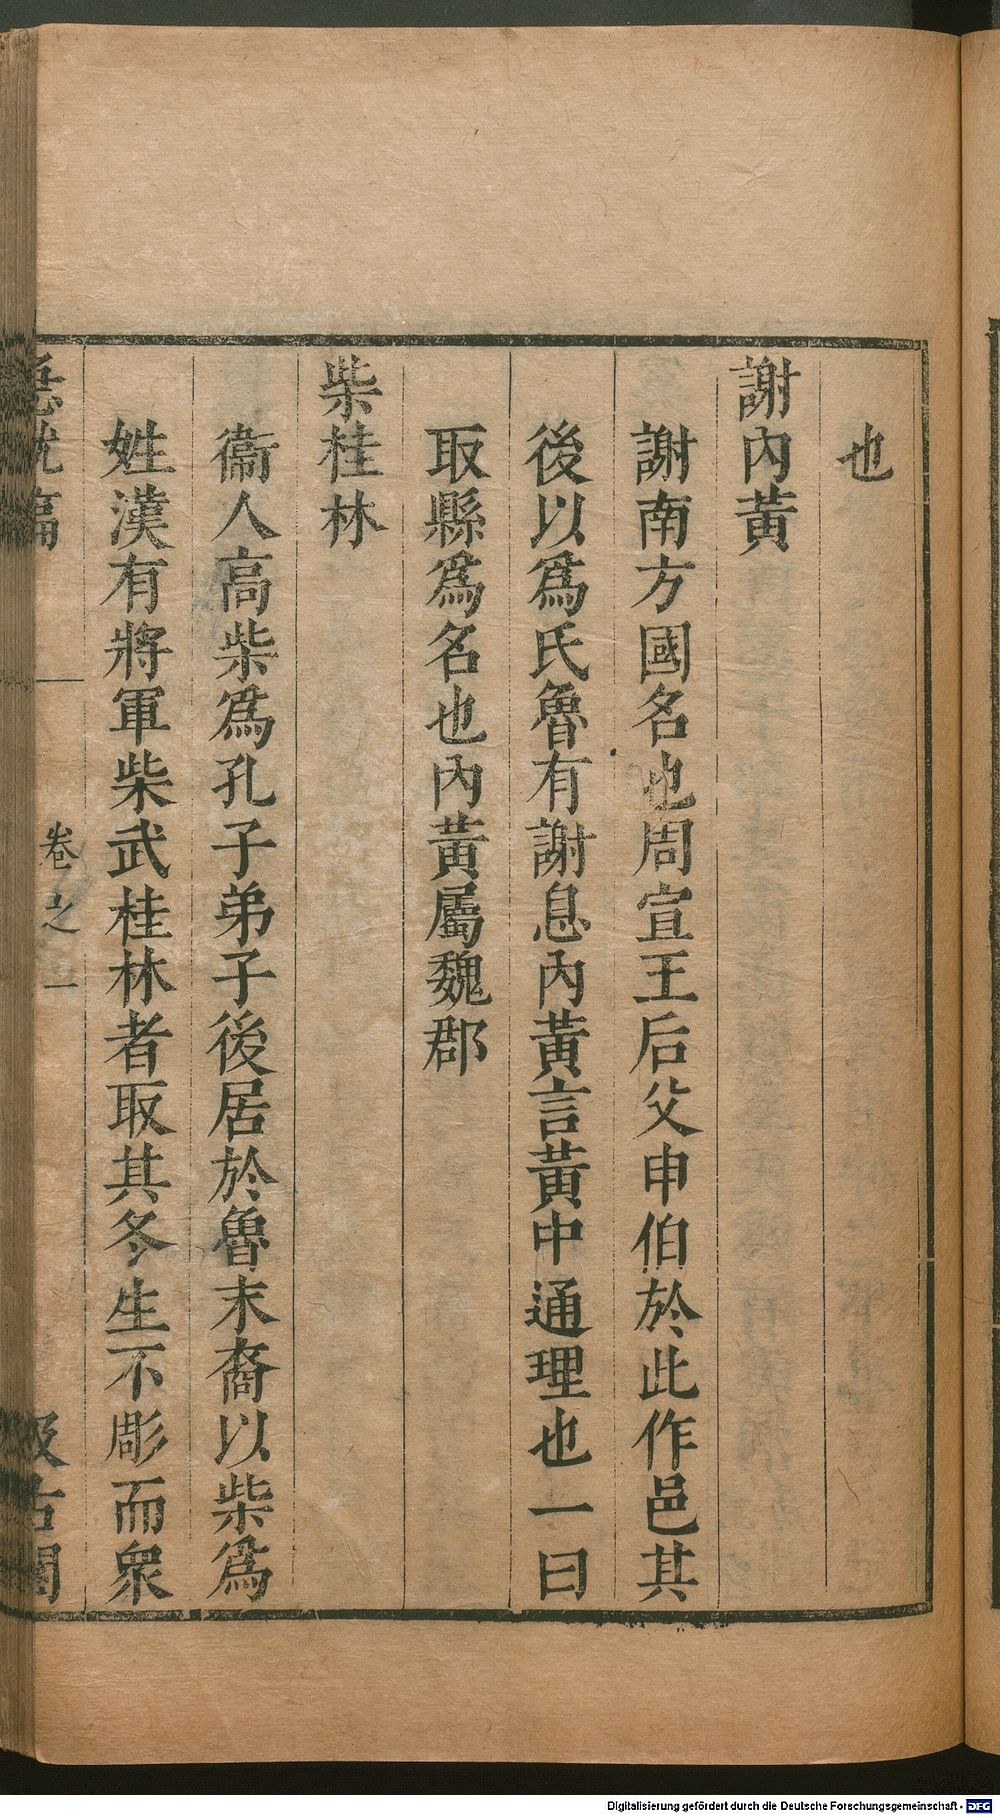 也
謝內黃
謝南方國名也周宣王后父申伯於此作邑其
後以爲氏魯有謝息內黃言黃中通理也一曰
取縣爲名也內黃屬魏郡
柴桂林
衞人高柴爲孔子弟子後居於魯末裔以柴爲
姓漢有將軍柴武桂林者取其冬生不彫而衆
急就篇
卷之一
汲古閣
Digitalisierung gefördert durch die Deutsche Forschungsgemeinschaft - DFG